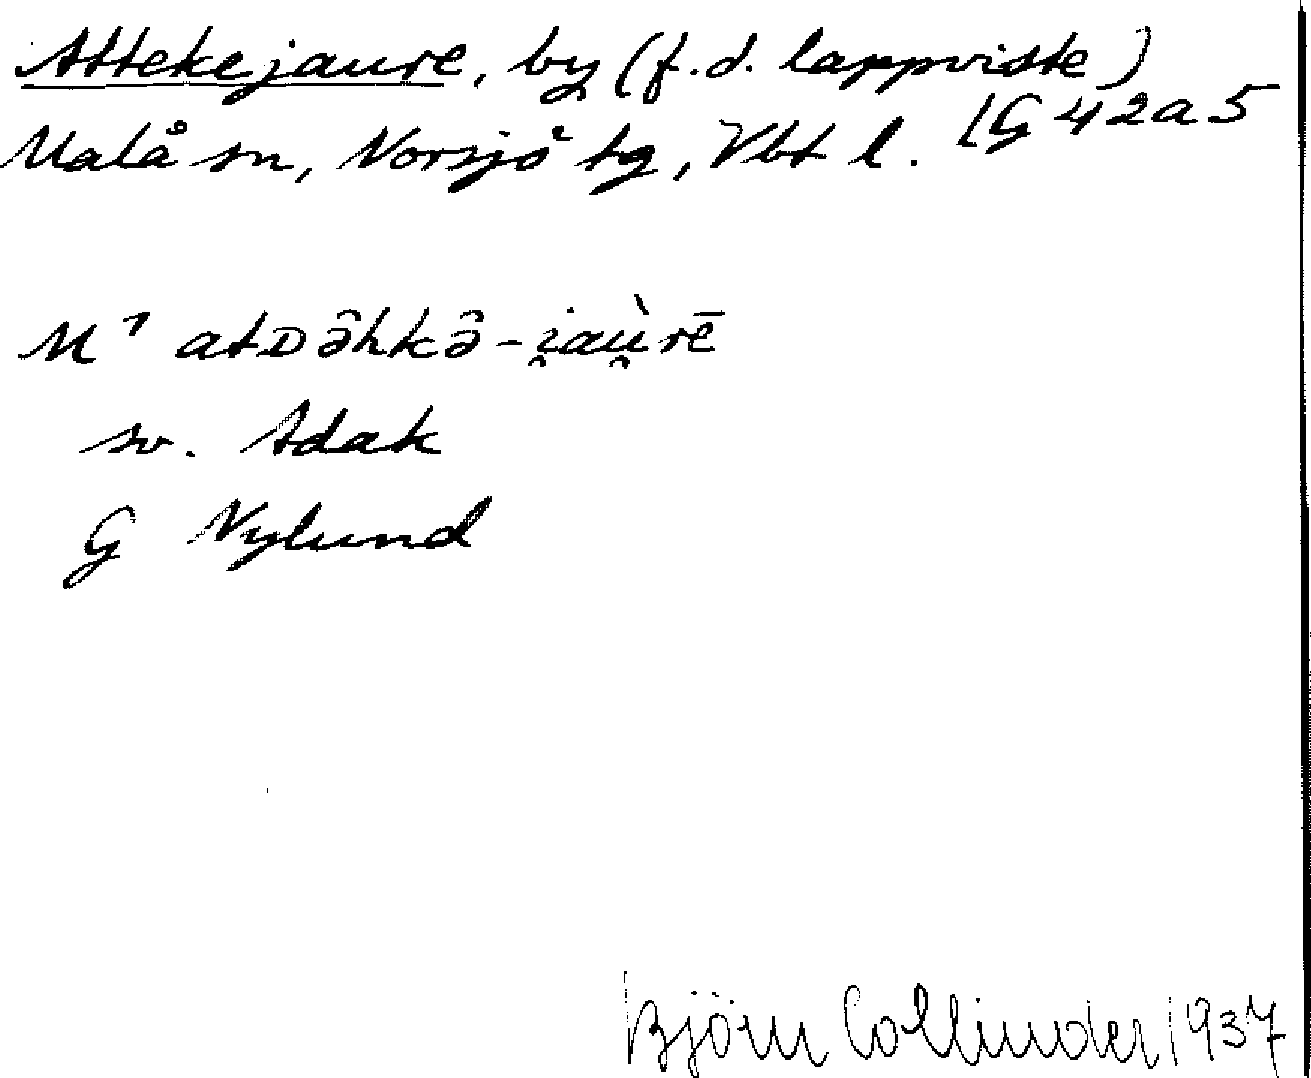 Attekejaure, by (f.d. lappviste)
Malå sn, Norsjö tg, Vbt l. LG 42a5
M⁊ atᴅə̂hkə̂-i̯aù̯rē
sv. Adak
G Nylund
Björn Collinder 1937